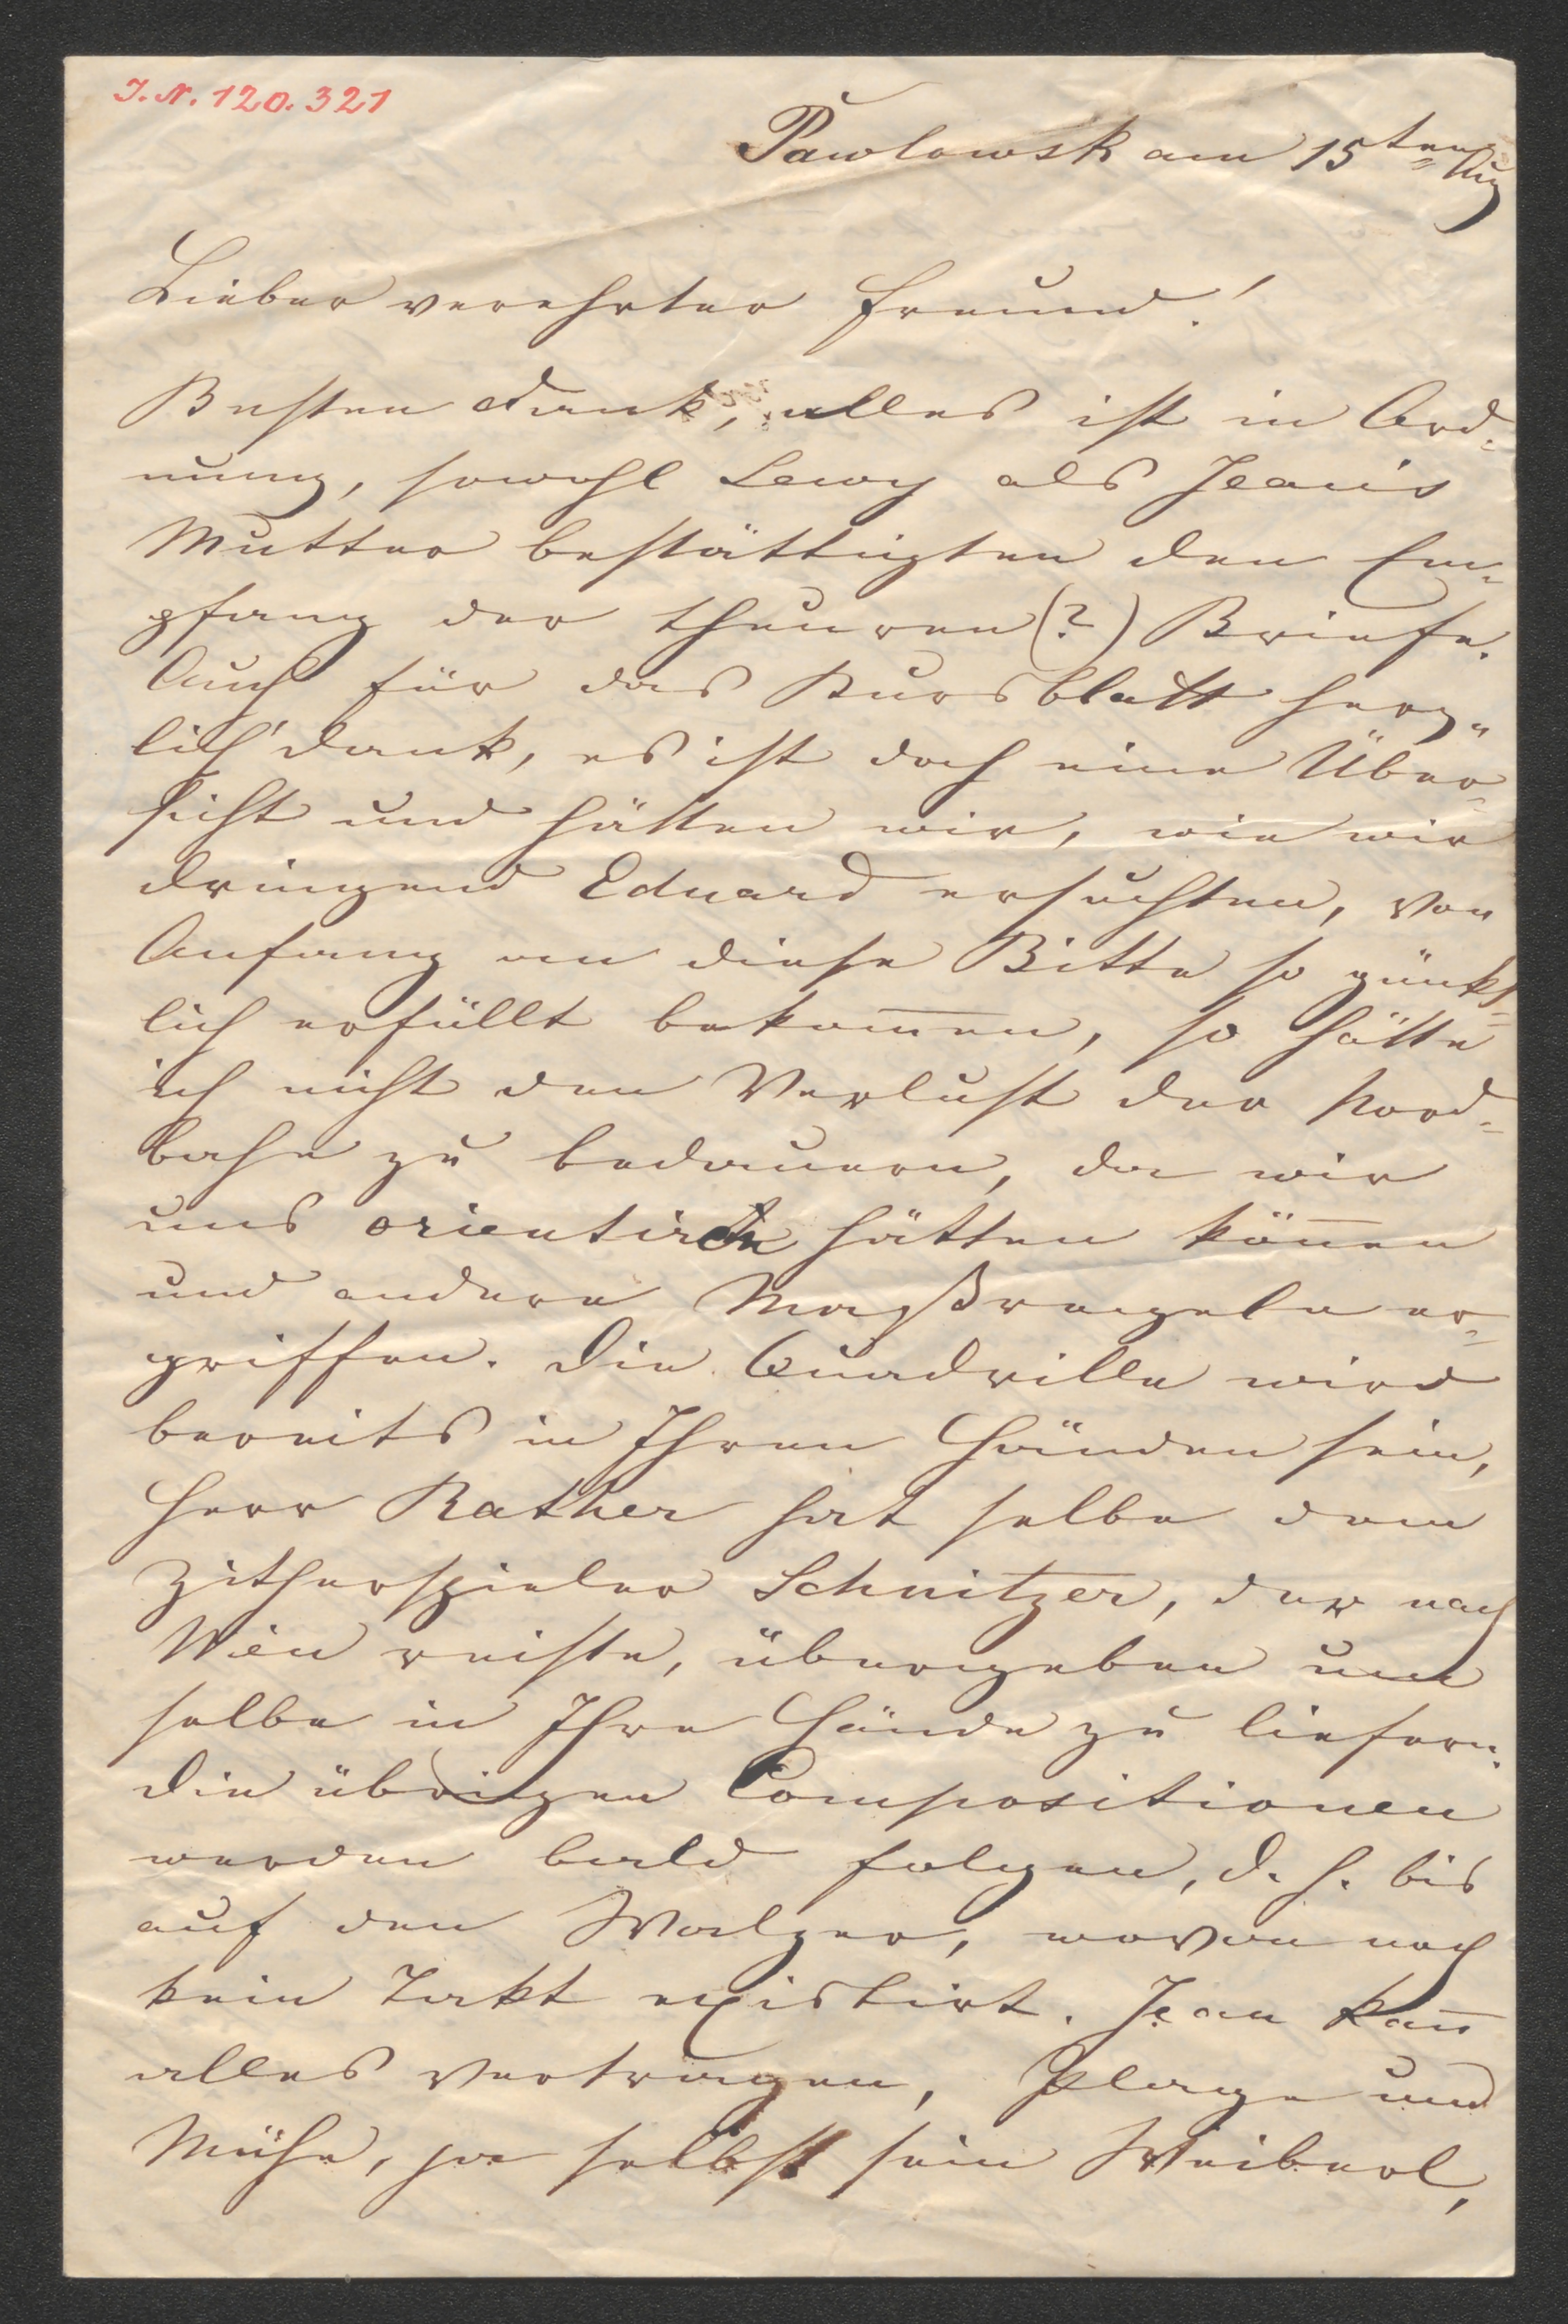 I. N. 120.321
Pawlowsk am 15ten Aug
Lieber verehrter Freund!
Besten Dank, alles ist in Ord-
nung, sowohl Lewy als Jean's
Mutter bestättigten den Em-
pfang der theuren (?) Briefe.
Auch für das Kursblatt herz-
lich' Dank, es ist doch eine Über-
sicht und hätten wir, wie wir
dringend Eduard ersuchten, von
Anfang an diese Bitte so pünkt-
lich erfüllt bekom̅en, so hätte
ich nicht den Verlust der Nord-
bahn zu bedauern, da wir
uns orientiren hätten kön̅en
und andere Maßregeln er-
griffen. Die Quadrille wird
bereits in Ihren Händen sein,
Herr Rather hat selbe dem
Zitherspieler Schnitzer, der nach
Wien reiste, übergeben um
selbe in Ihre Hände zu liefern.
Die übrigen Compositionen
werden bald folgen, d. h. bis
auf den Walzer, wovon noch
kein Takt existirt. Jean kan̅
alles vertragen, Plage und
Mühe, ja selbst sein Weiberl,